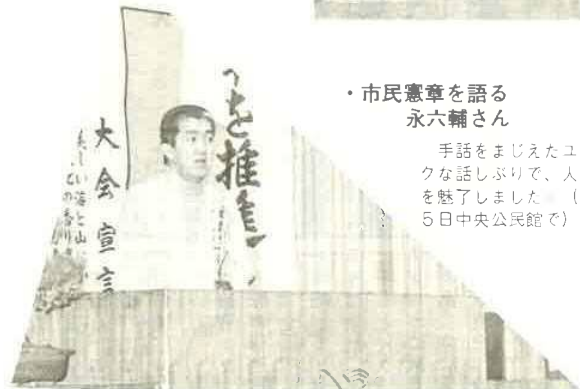 ・市民憲章を語る
永六輔さん
手話をまじえたユ
クな話しぶりで、人
を魅了しました （
5日中央公民館で）
を推進
大会宣言
美しい